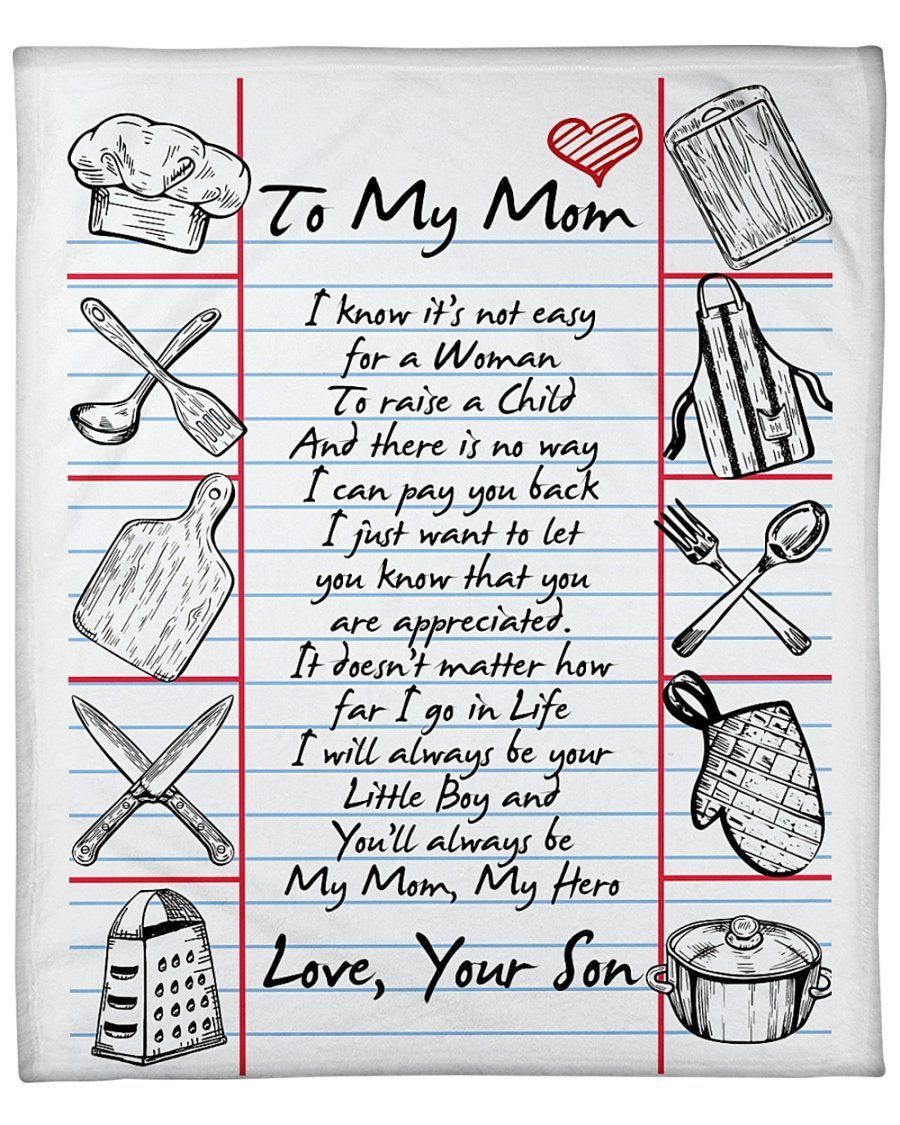 To My Mom
I know it's not easy
for a Woman
To raise a Child
And there is no way
I can pay you back
I just want to let
you know that you
are appreciated.
It doesn't matter how
far I go in Life
I will always be your
Little Boy and
You'll always be
My Mom, My Hero
Love, Your Son